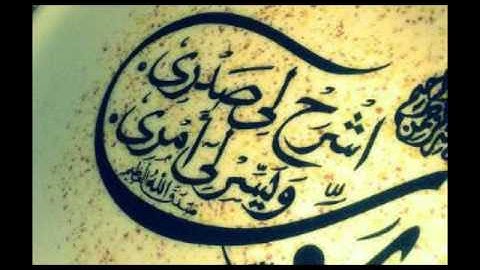 رَبِّ
اشْرَحْ لِي صَدْرِي
وَيَسِّرْ لِي أَمْرِي
صدق الله العظيم